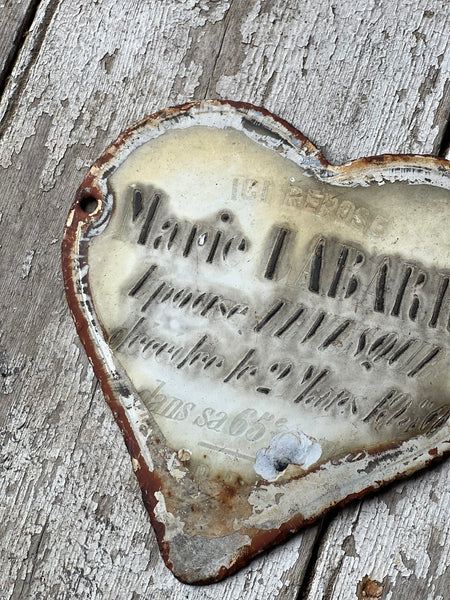 ICI REPOSE
Marie LABARI
Epouse
décédée le 2 Mars 19
dans sa 65e